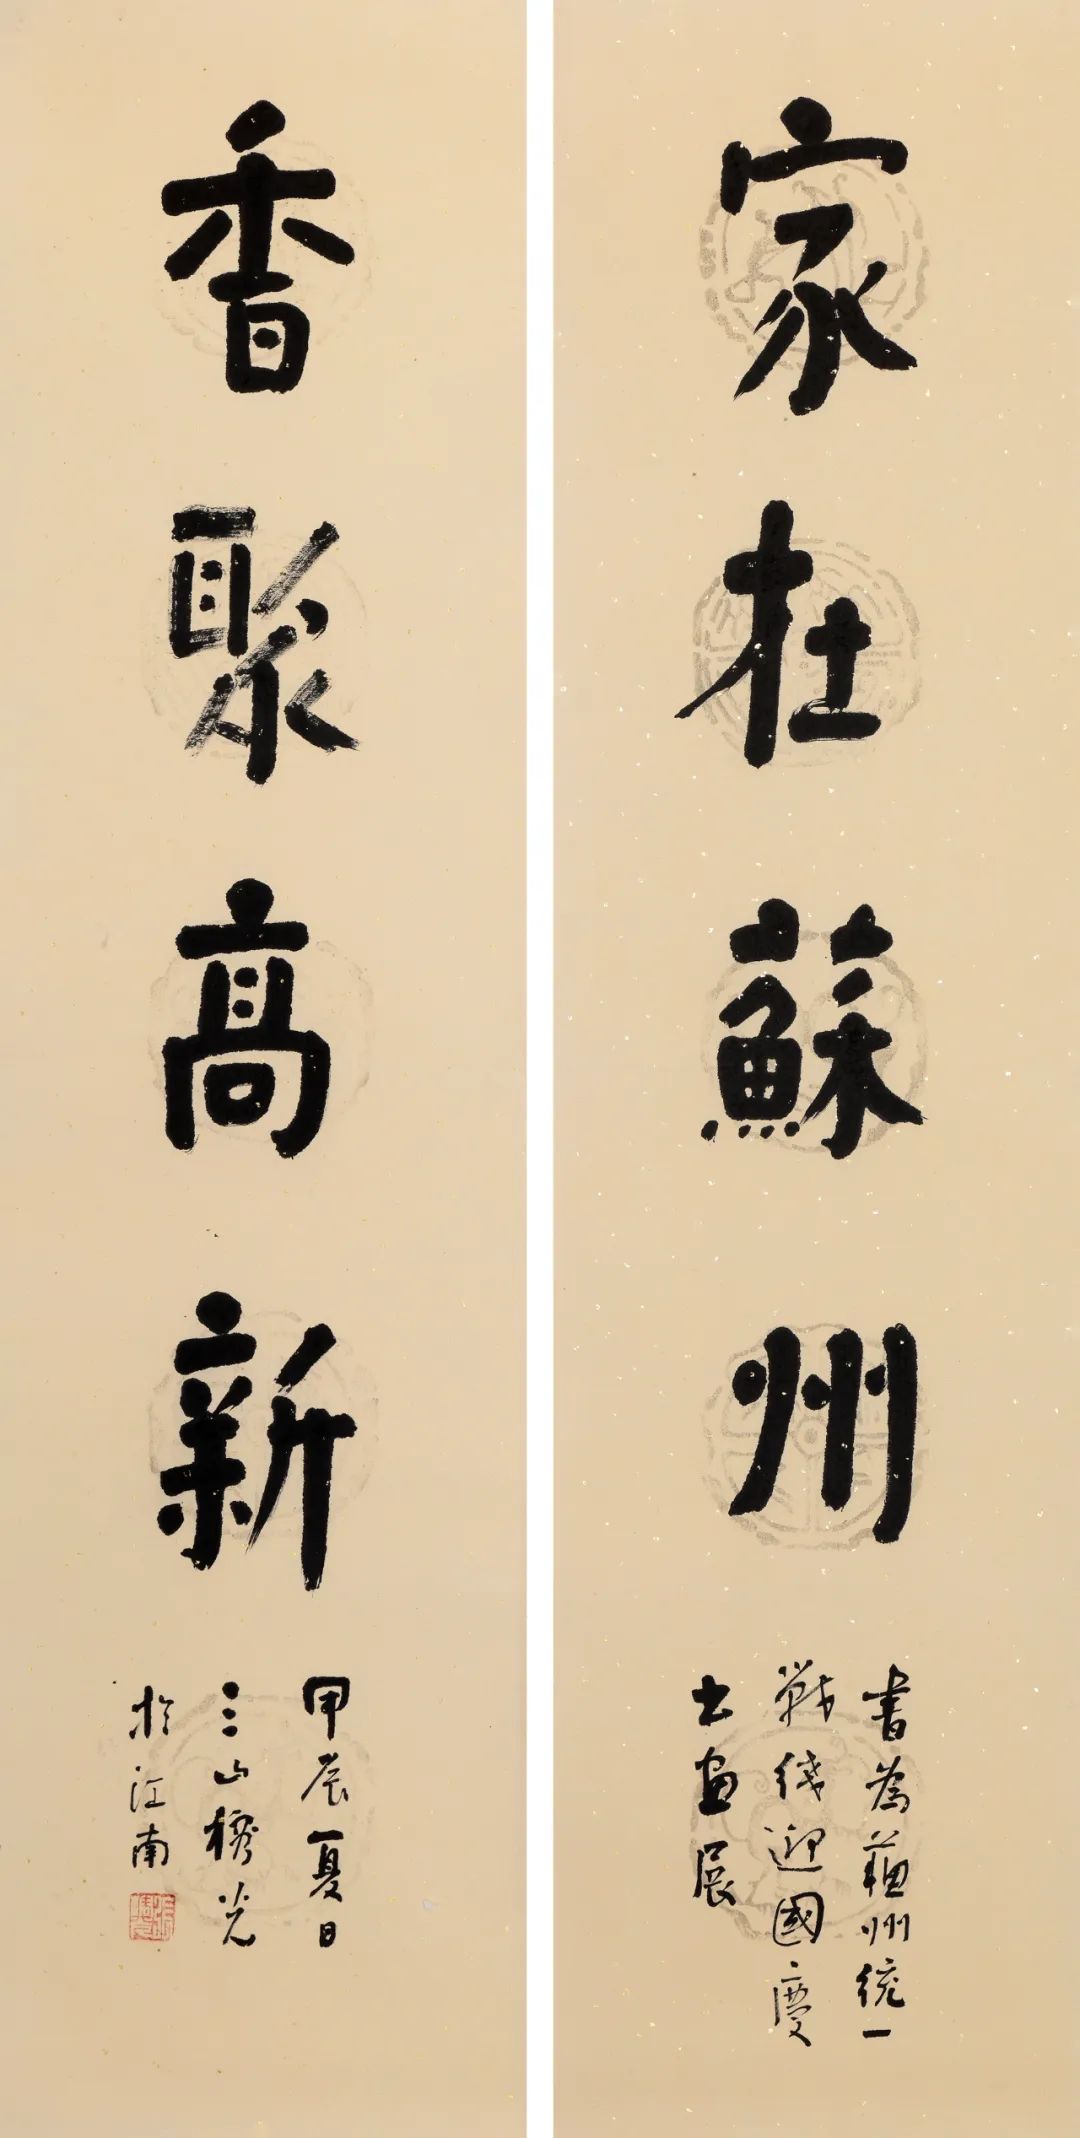 家在蘇州
書為蘇州統一
戰綫迎國慶
书画展
香聚高新
甲辰夏日
三山光
於江南